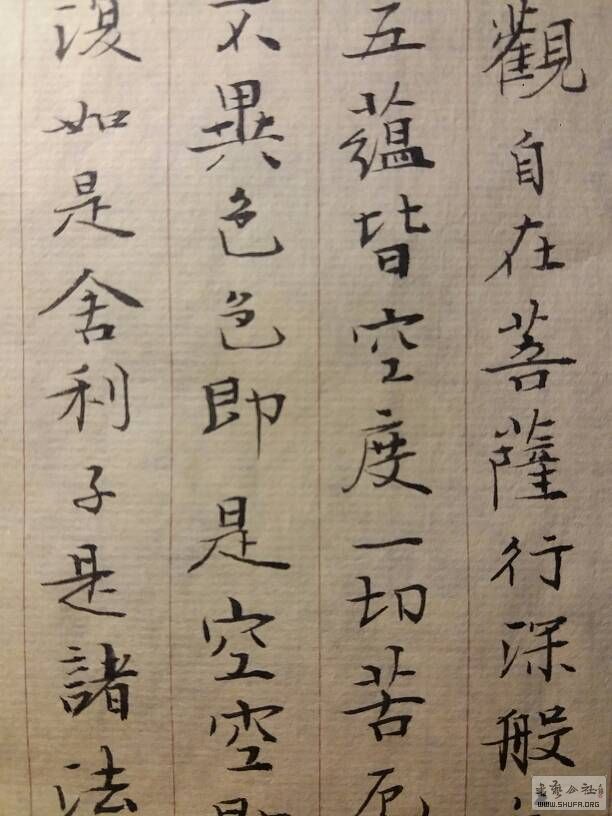 觀自在菩薩行深般
五蘊皆空度一切苦厄
不異色色即是空空即
復如是舍利子是諸法
书艺公社
WWW.SHUFA.ORG